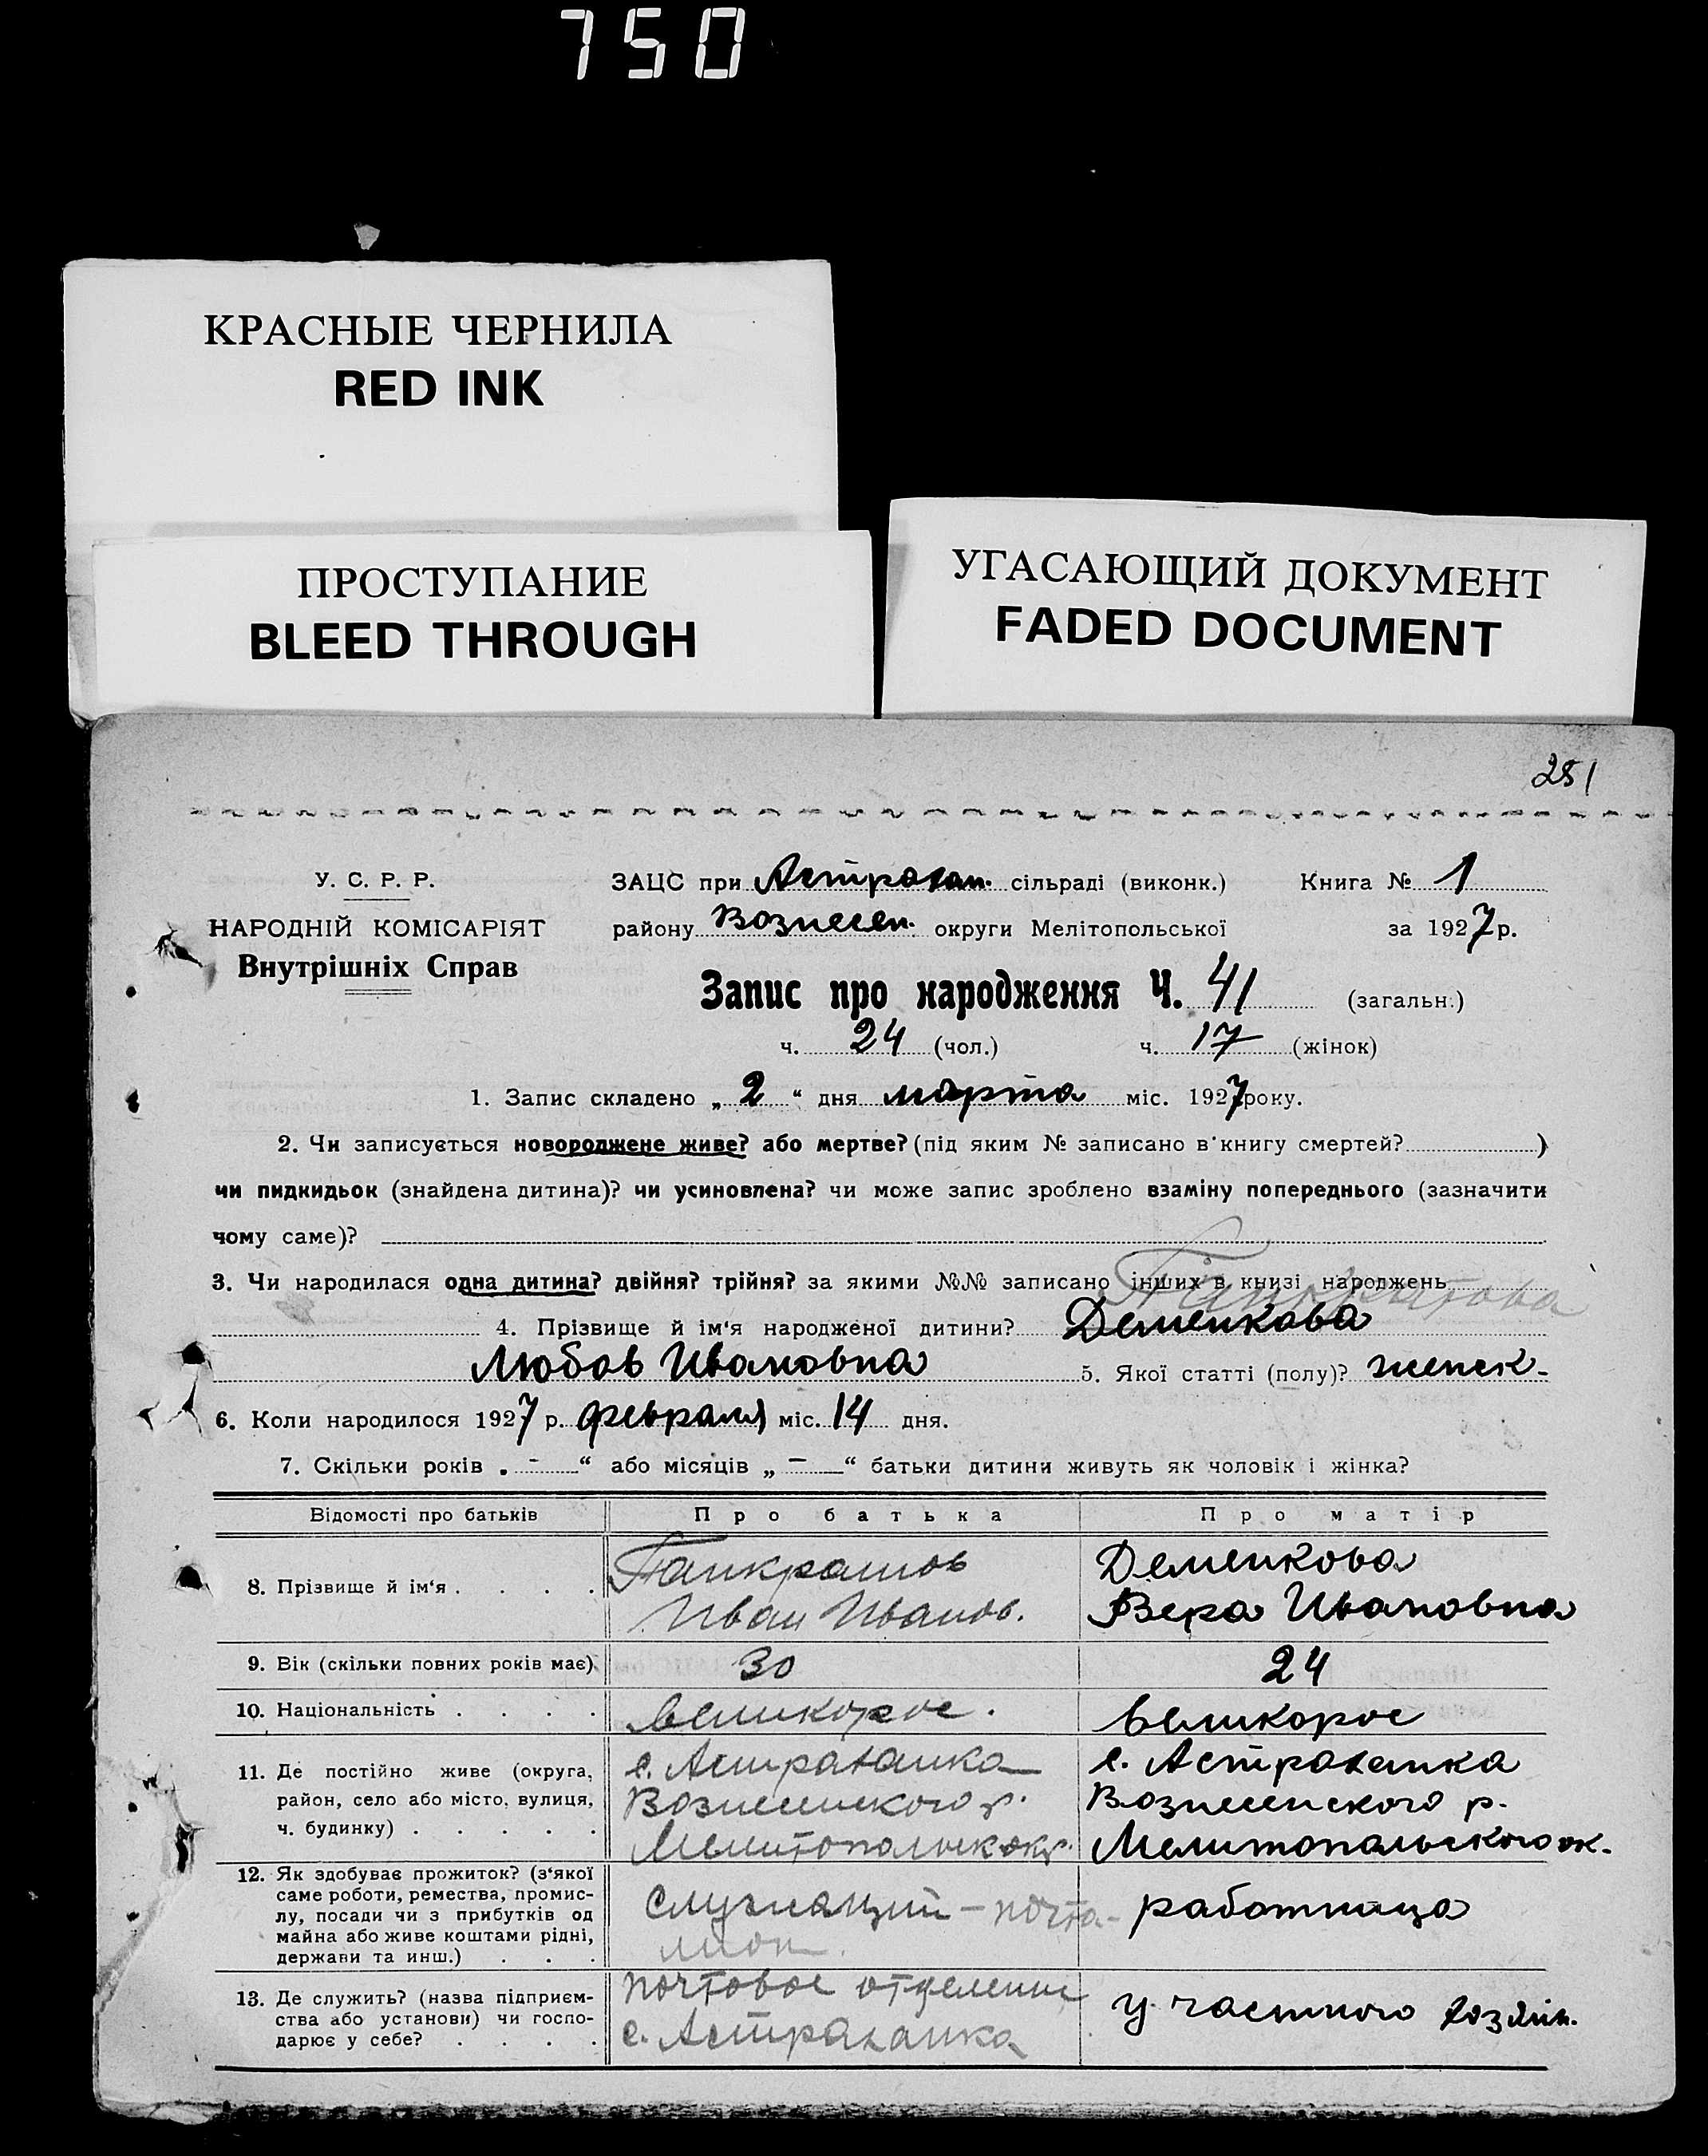 750
КРАСНЫЕ ЧЕРНИЛА
RED INK
ПРОСТУПАНИЕ
BLEED THROUGH
УГАСАЮЩИЙ ДОКУМЕНТ
FADED DOCUMENT
281
У. С. Р. Р.
НАРОДНІЙ КОМІСАРІЯТ
Внутрішніх Справ
ЗАЦС при Астрахан. сільраді (виконк.) Книга № 1
району Вознесен. округи Мелітопольської за 1927 р.
Запис про народження Ч. 41 (загальн.)
ч. 24 (чол.) ч. 17 (жінок)
1. Запис складено „ 2 “ дня марта міс. 1927 року.
2. Чи записується новороджене живе? або мертве? (під яким № записано в книгу смертей? )
чи пидкидьок (знайдена дитина)? чи усиновлена? чи може запис зроблено взаміну попереднього (зазначити
чому саме)?
3. Чи народилася одна дитина? двійня? трійня? за якими №№ записано інших в книзі народжень
Панкратова
4. Прізвище й ім‘я народженої дитини? Деменкова
Любовь Ивановна 5. Якої статті (полу)? женск-
6. Коли народилося 1927 р. февраля міс. 14 дня.
7. Скільки років „ - “ або місяців „ - “ батьки дитини живуть як чоловік і жінка?
Відомості про батьків Про батька Про матір
8. Прізвище й ім‘я . . . .
Панкратов
Иван Иванов.
Деменкова
Вера Ивановна
9. Вік (скільки повних років має) 30 24
10. Національність . . . . великорос. великорос
11. Де постійно живе (округа,
район, село або місто, вулиця,
ч. будинку) . . . . .
с. Астраханка
Вознесенского р.
Мелитопольск окр.
с. Астраханка
Вознесенского р.
Мелитопольского ок.
12. Як здобуває прожиток? (з‘якої
саме роботи, ремества, промис-
лу, посади чи з прибутків од
майна або живе коштами рідні,
держави та инш.) . . .
Служащий - почта-
лион.
работница
13. Де служить? (назва підприєм-
ства або установи) чи госпо-
дарює у себе? . . . .
почтовое отделение
с. Астраханка
у частного хозяин.